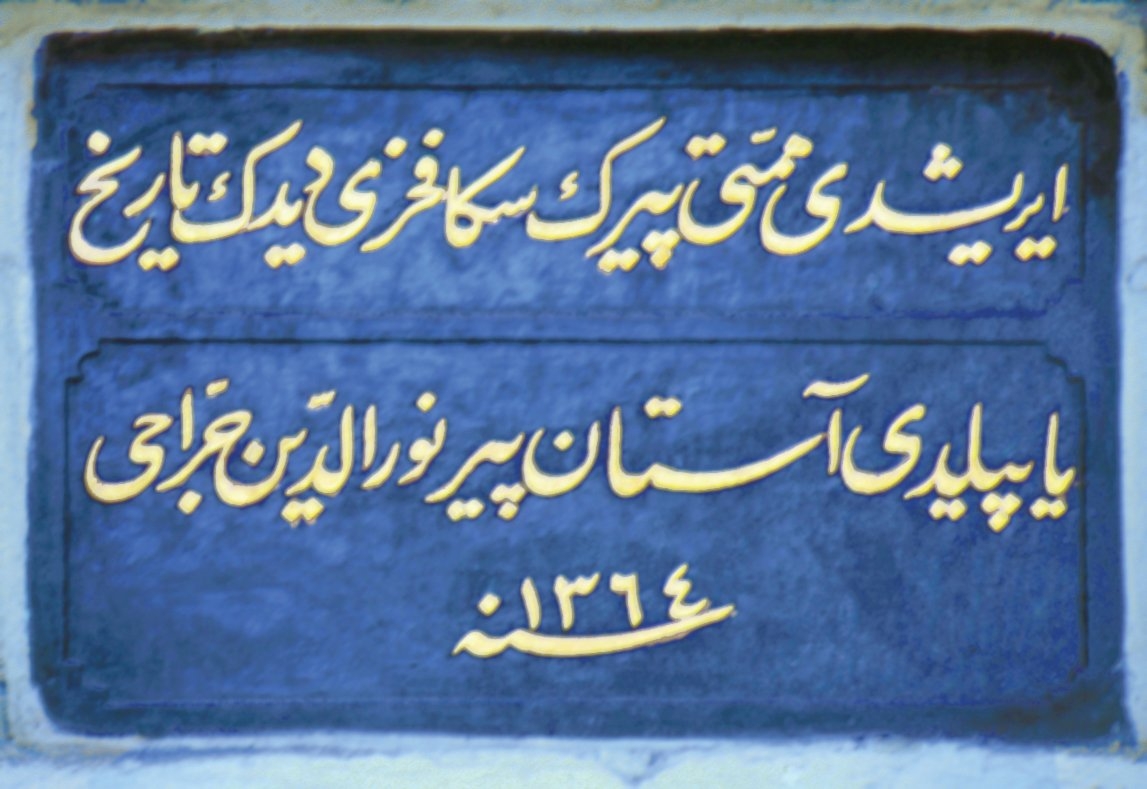 ایریشدی همّتی پیرڭ سکا فخری دیدڭ تاریخ
یاپیلدی آستان پیر نورالدّین جرّاحی
سنه ١٣٦٤